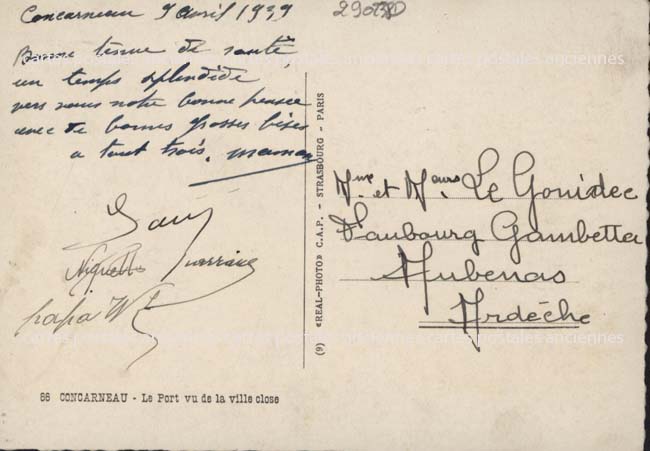 Concarneau 9 avril 1939
29039D
Bonne tenue de santé,
un temps splendide
vers vous notre bonne pensée
avec de bonnes grosses bises
a tout trois. maman
Niquette
papa
Mme et Mrs Le Gouidec
Faubourg Gambetta
Aubenas
Ardèche
(9) «REAL-PHOTO» C.A.P. - STRASBOURG - PARIS
66 CONCARNEAU - Le Port vu de la ville close
cartes postales anciennes